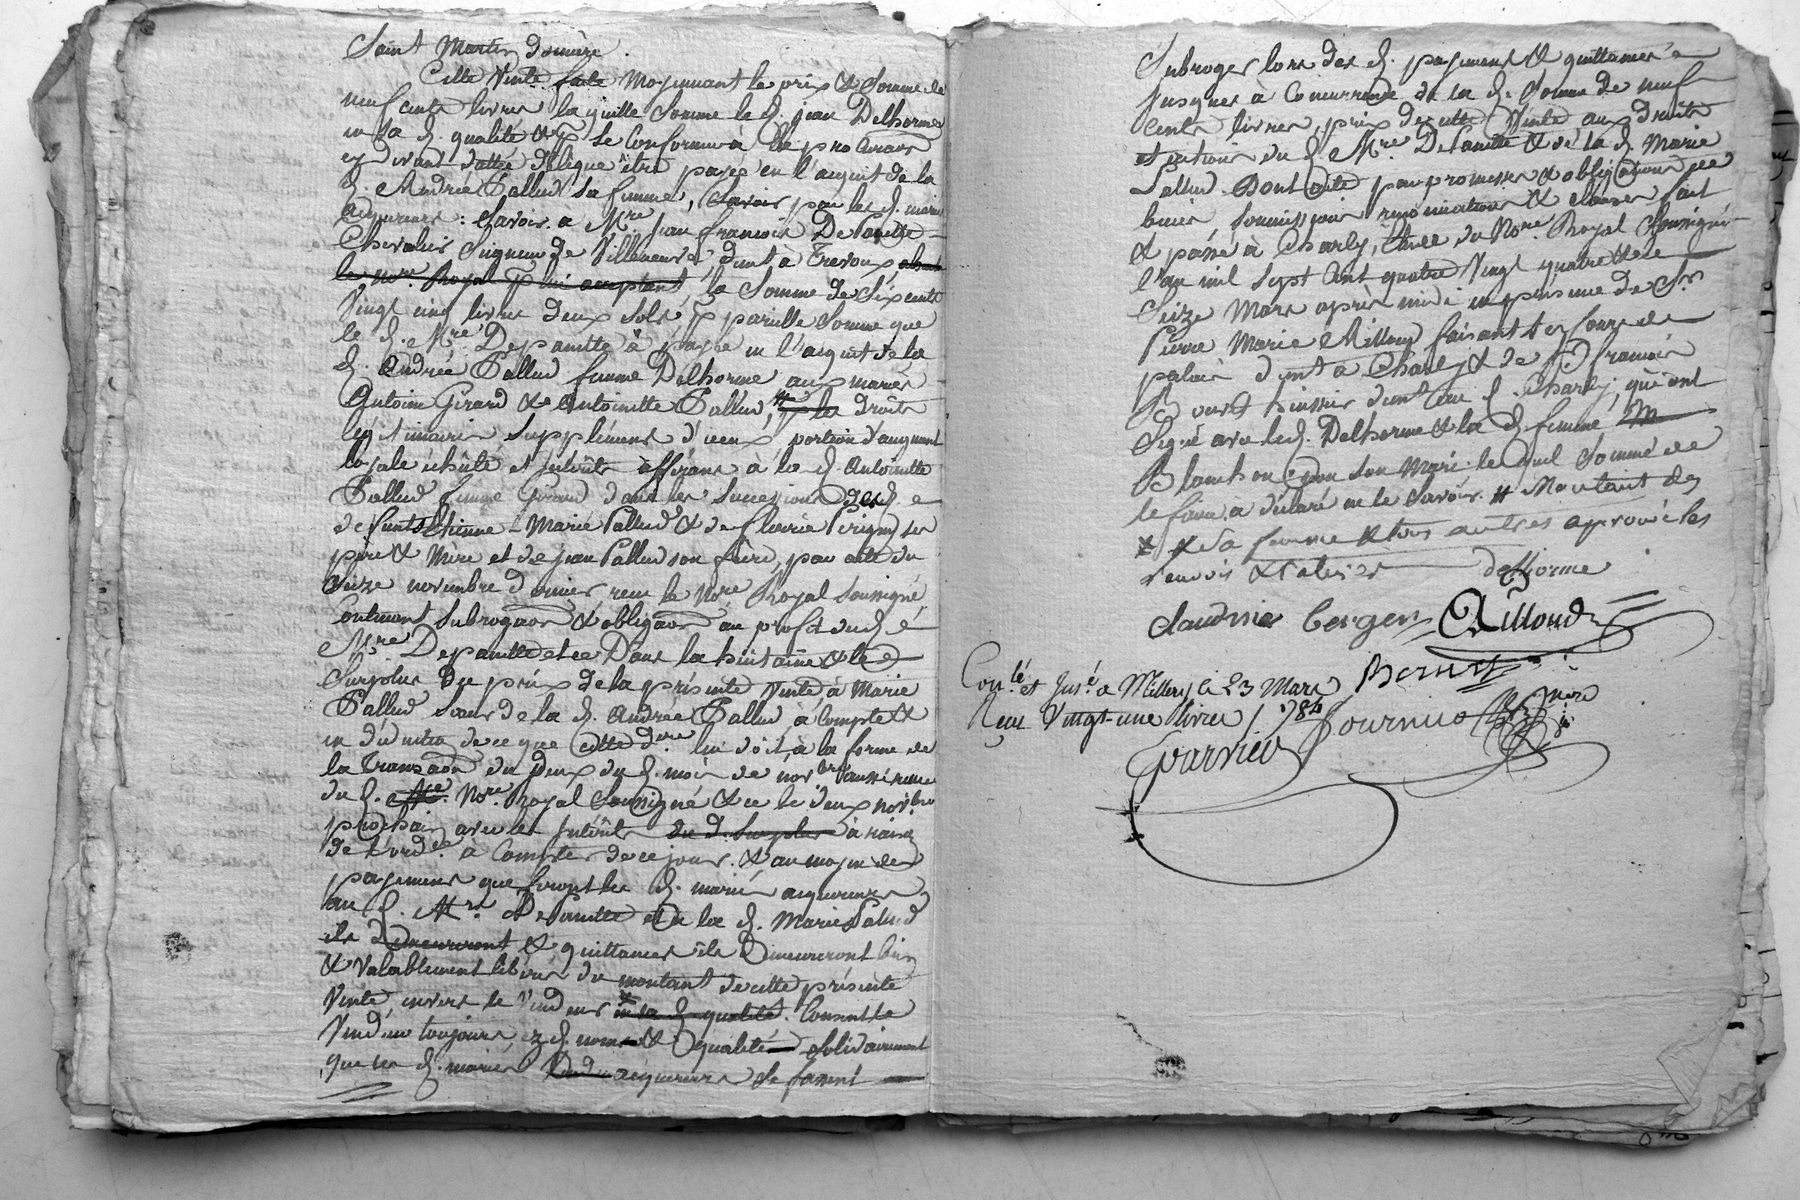 Saint Martin
Cette Vente faite moyennant le prix & Somme de
neuf cents livres la quelle Somme le d. jean Delhorme
en sa d. qualité & p. Se Conformer à la procuraon
cy devant dattée délègue être payée en l'acquit de la
d. Andrée Pallud sa femme, Savoir par les d. mariés
acquereurs : Savoir. a Mre. Jean françois Depanette
Chevalier Seigneur de Villeneuve dmt à Trevoux absent
le nore. Royal p. lui acceptant la Somme de Six cents
Vingt cinq livres deux Sols p. pareille Somme que
le d. Mre. Depanette à payée en l'acquit de la
d. Andrée Pallud femme Delhorme aux mariés
Antoine Girard & Antoinette Pallud, # p. les droits
légitimaires Suppléments d'iceux, portion d'augment
légale échûte et intérêts afférans à la d. Antoinette
Pallud femme Girard dans les Successions des d.
défunts Etienne Marie Pallud & de fleurie Perigny ses
père & Mère et de jean Pallud son frère, par acte du
Seize novembre dernier reçu le Nore Royal Soussigné,
Contenant Subrogaon & obligaon au profit du d.
Mre Depanette et ce Dans la huitaine & le
Surplus Du prix de la présente Vente à Marie
Pallud Soeur de la d. Andrée Pallud à Compte &
en de ce que Cette dre lui doit, à la forme de
la Transaon du deux du d. mois de novbre aussi reçue
du d. Me. Nore. Royal Soussigné & ce le deux novbre
prochain avec les Intérêts du d. Surplus à raison
de l'ordce. a Compter de ce jour. & au moyen des
payements que feront les d. mariés acquereurs
au d. Mre. Depanette et à la d. Marie Pallud
ils Demeureront & quittances ils Demeureront bien
& Valablement libérés du montant de cette présente
Vente envers le Vendeur * en sa d. qualité. Consent le
Vendeur toujours ez d. noms & qualité Solidairement
que les d. mariés acquereurs Se fassent
Subroger lors des d. payement & quittances
Jusques à Concurrence de la d. Somme de neuf
Cents livres, prix de cette Vente aux droits
et actions du d. Mre. Depanette & de la d. Marie
Pallud. Dont acte par promesses & obligations de
biens Soumissions renonciations & clauses fait
& passé à Charly, Etude du Nore. Royal Soussigné
l'an mil Sept Cent quatre Vingt quatre & le
Seize Mars après midi en présence de Sr.
Pierre Marie Ailloud faisant
palais dmt a Charly & de françois
huissier dmt au d. Charly, qui ont
Signé avec le d. Delhorme & la d. femme
Blanchon son Mari lequel Sommé de
le faire a déclaré ne le Savoir. # Montant des
* & Sa femme & tous autres aprouvé les
renvois & ratures delhorme
claudine berger Ailloud
Bernier
Conlé et Insé a Millery le 23 Mars
Reçu Vingt-une livres / 1784 Fournier
Garnier